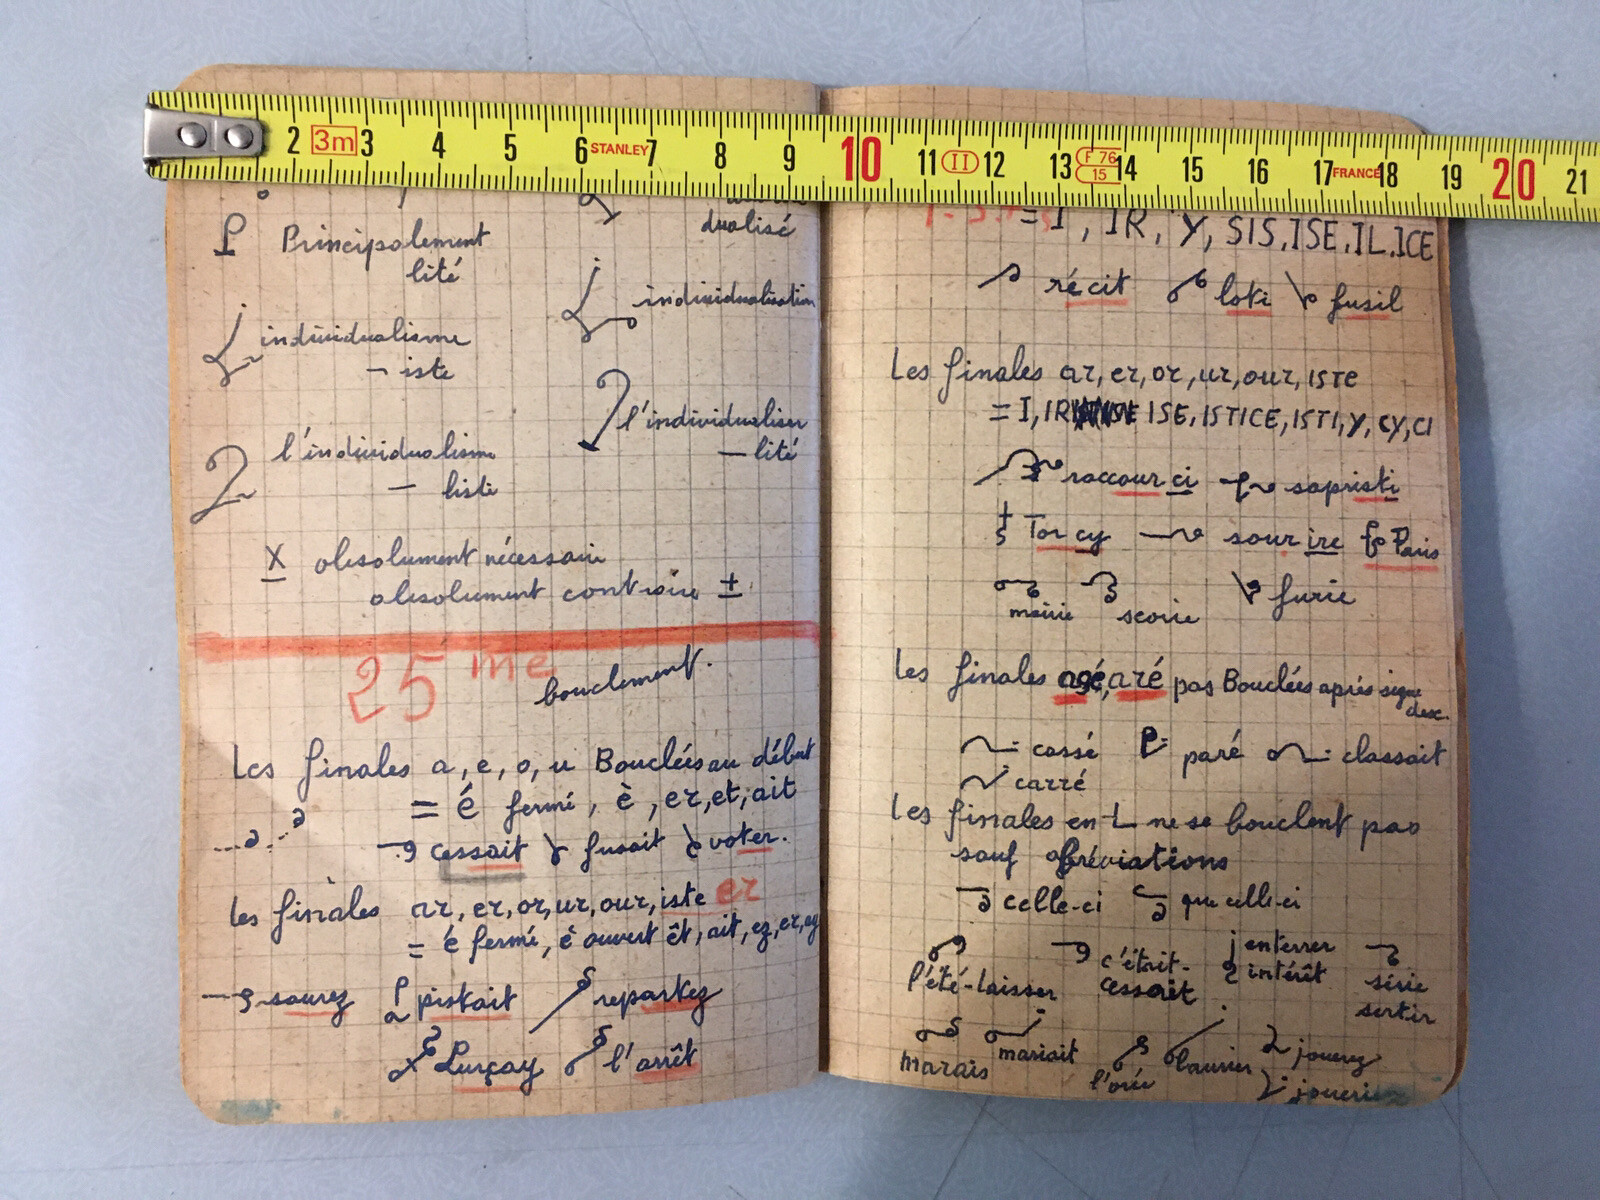 2 3m 3 4 5 6 STANLEY 7 8 9 10 11 II 12 13 F 76 15 14 15 16 17 FRANCE 18 19 20 21
dualisé
Principalement
lité
individualisation
individualisme
- iste
l'individualiser
— lité
l'individualism
— liste
X absolument nécessair
absolument contraire ±
25 me
bouclement.
Les finales a, e, o, u Bouclées au début
= é fermé, è, er, et, ait
cessait fusait voter.
les finales ar, er, or, ur, our, iste er
= é fermé, è ouvert êt, ait, ez, er, ay
saurez pistait repartez
Lurçay l'arrêt
= I, IR, Y, SIS, ISE, IL, ICE
récit loti fusil
Les finales ar, er, or, ur, our, ISTE
= I, IR ISE, ISTICE, ISTI, Y, CY, CI
raccourci sapristi
Torcy sourire Paris
mairie scorie furie
Les finales agé, aré pas Bouclées après signe
desc.
cassé paré classait
carré
Les finales en L ne se bouclent pas
sauf abréviations
celle-ci que celle-ci
l'été-laisser c'était- cesserait enterrer intérêt série sertir
marais mariait l'orée laurier jouerez
jouerie